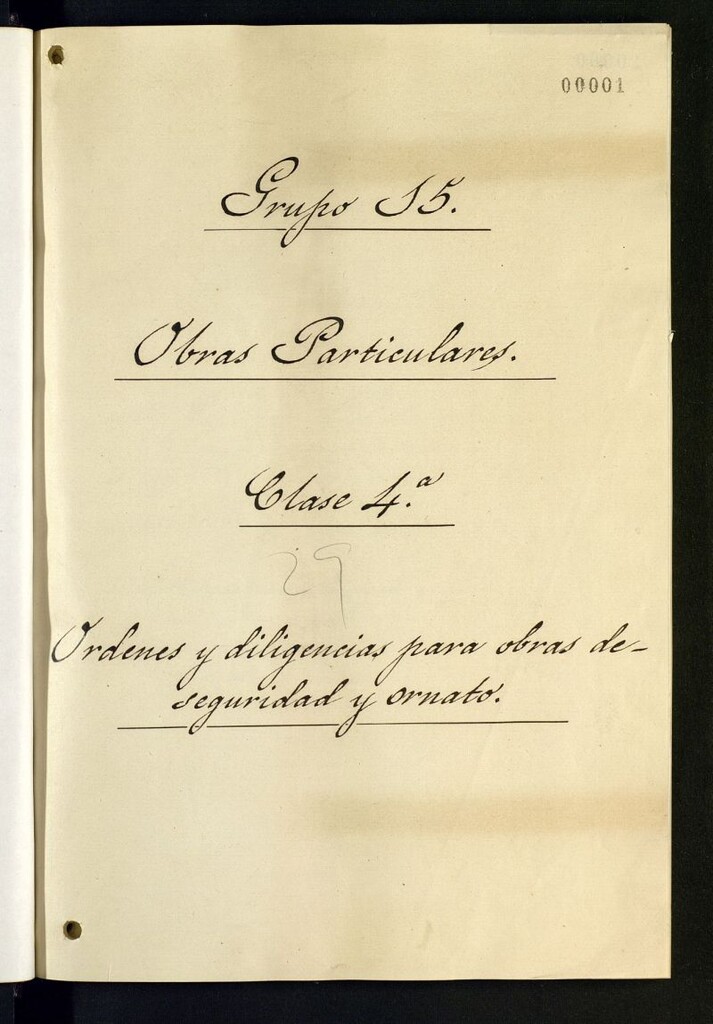 00001
Grupo 15.
Obras Particulares.
Clase 4.ª
29
Ordenes y diligencias para obras de-
seguridad y ornato.